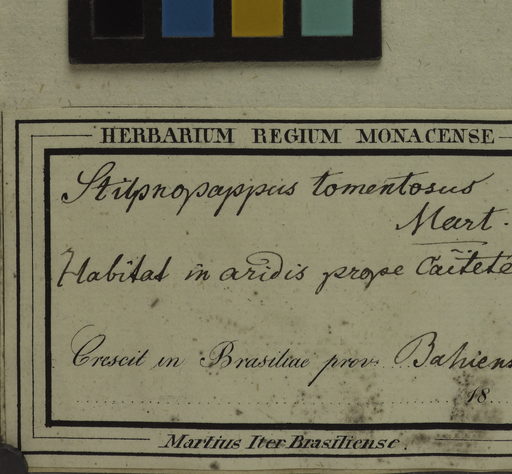 HERBARIUM REGIUM MONACENSE
Stilpnopappus tomentosus
Mart.
Habitat in aridis prope Caïteté
Crescit in Brasiliae prov. Bahiens
18
Martius Iter Brasiliense.